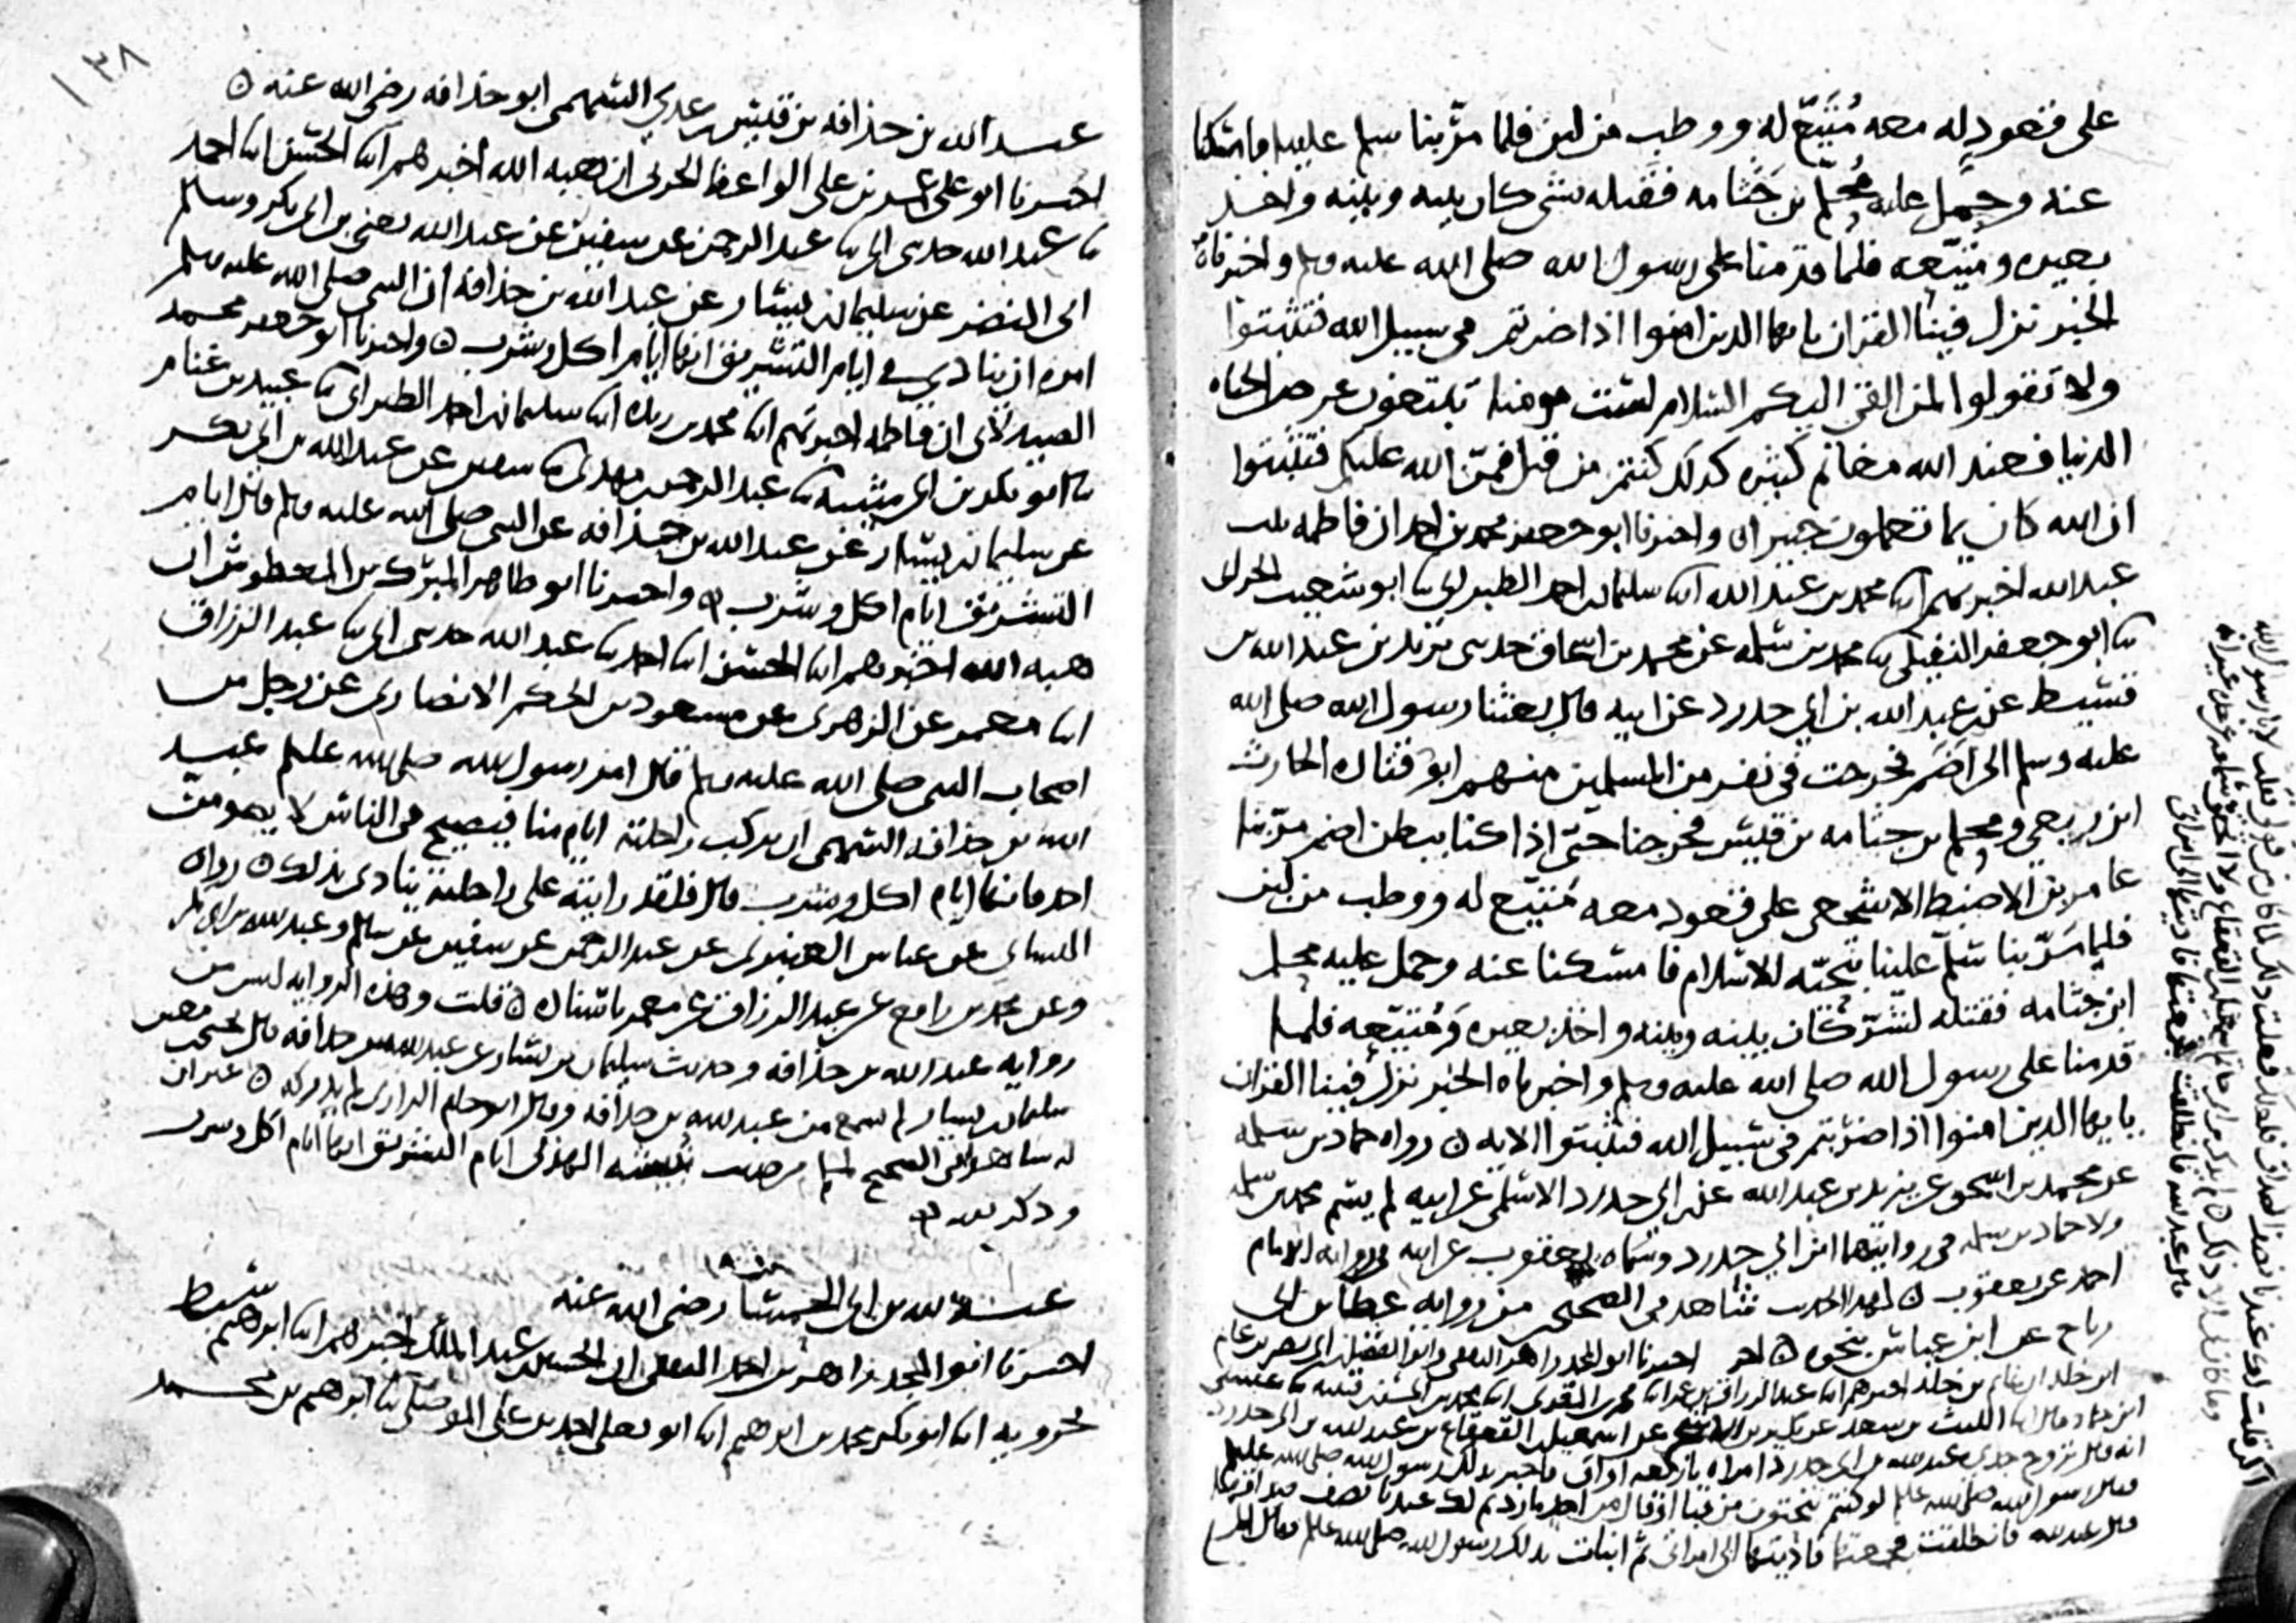 على قعود له معه مُتَيِّع له ووطب من لبن فلما مرّ بنا سلم علينا فامسكنا
عنه وحمل عليه مُحَلِّم بن جَثّامه فقتله بشى كان بينه وبينه واخذ
بعيره ومتيّعه فلما قدمنا على رسول الله صلى الله عليه وسلم واخبرناه
الخبر نزل فينا القران يا ايها الذين امنوا اذا ضربتم فى سبيل الله فتثبتوا
ولا تقولوا لمن القى اليكم السلام لست مومنا تبتغون عرض الحياه
الدنيا فعند الله مغانم كثيره كذلك كنتم من قبل فمنّ الله عليكم فتثبتوا
ان الله كان بما تعملون خبيرا ه واخبرنا ابو جعفر محمد بن احمد ان فاطمه بنت
عبد الله اخبرتهم ابنا محمد بن عبد الله ابنا سليمان بن احمد الطبرانى ثنا ابو شعيب الحرانى
ثنا ابو جعفر النفيلى ثنا محمد بن سلمه عن محمد بن اسحاق حدثنى يزيد بن عبد الله بن
قسيط عن عبد الله بن ابى حدرد عن ابيه قال بعثنا رسول الله صلى الله
عليه وسلم الى اضم فخرجت فى نفر من المسلمين منهم ابو قتاده الحارث
ابن ربعى ومحلم بن جثامه بن قيس فخرجنا حتى اذا كنا ببطن اضم مرّ بنا
عامر بن الاضبط الاشجعى على قعود معه مُتَيِّع له ووطب من لبن
فلما مرّ بنا سلم علينا بتحيّه الاسلام فامسكنا عنه وحمل عليه محلم
ابن جثامه فقتله لشرّ كان بينه وبينه واخذ بعيره ومُتَيِّعه فلما
قدمنا على رسول الله صلى الله عليه وسلم واخبرناه الخبر نزل فينا القران
يا يها الذين امنوا اذا ضربتم فى سبيل الله فتثبتوا الايه ه رواه حماد بن سلمه
عن محمد بن اسحق عن يزيد بن عبد الله عن ابى حدرد الاسلمى عن ابيه لم يسم محمد بن سلمه
ولا حماد بن سلمه فى روايتهما ابن ابى حدرد وسماه يعقوب عن ابيه فى روايه الامام
احمد عن يعقوب ه لهذا الحديث شاهد فى الصحيح من روايه عطا بن ابى
رباح عن ابن عباس بنحوه ه اخر اخبرنا ابو المجد زاهر الثقفى
ابن خلد اخبرهم ابنا عبد الرزاق بن عمر
ابن حماد قال ابنا الليث بن سعد عن اسمعيل بن القعقاع بن عبد الله بن ابى حدرد
انه قال تزوج جدى عبد الله بن ابى حدرد امراه باربعه اواق فاخبر بذلك رسول الله صلى الله عليه وسلم
فقال رسول الله صلى الله عليه وسلم لو كنتم تنحتون من
قال عبد الله فانطلقت فجمعتها فاديتها الى امراتى ثم انبات بذلك رسول الله صلى الله عليه وسلم فقال الم
اكن قلت لك عندنا نصف الصداق
١٣٨
عبد الله بن حذافه بن قيس بن عدى السهمى ابو حذافه رضى الله عنه ه
اخبرنا ابو على بن على الواعظ الحربى ان هبه الله اخبرهم ابنا الحسن ابنا احمد
ثنا عبد الله حدثنى ابى ثنا عبد الرحمن عن سفين عن عبد الله يعنى بن ابى بكر وسالم
ابى النضر عن سليمان بن يسار عن عبد الله بن حذافه ان النبى صلى الله عليه وسلم
امره ان ينادى فى ايام التشريق انها ايام اكل وشرب ه واخبرنا ابو جعفر محمد
الصيدلانى ان فاطمه اخبرتهم ابنا محمد بن ريذه ابنا سليمان بن احمد الطبرانى ثنا عبيد بن غنام
ثنا ابو بكر بن ابى شيبه ثنا عبد الرحمن بن مهدى ثنا سفين عن عبد الله بن ابى بكر
عن سليمان بن يسار عن عبد الله بن حذافه عن النبى صلى الله عليه وسلم قال ايام
التشريق ايام اكل وشرب ه واخبرنا ابو طاهر المبارك بن المعطوش ان
هبه الله اخبرهم ابنا الحسن ابنا احمد ثنا عبد الله حدثنى ابى ثنا عبد الرزاق
ابنا معمر عن الزهرى عن مسعود بن الحكم الانصارى عن رجل من
اصحاب النبى صلى الله عليه وسلم قال امر رسول الله صلى الله عليه وسلم عبد
الله بن حذافه السهمى ان يركب راحلته ايام منا فيصيح فى الناس لا يصومن
احد فانها ايام اكل وشرب قال فلقد رايته على راحلته ينادى بذلك ه رواه
النسائى عن عباس العنبرى عن عبد الرحمن عن سفين عن سالم وعبد الله بن ابى بكر
وعن محمد بن رافع عن عبد الرزاق عن معمر باسناده ه قلت وهذه الروايه ليس من
روايه عبد الله بن حذافه وحديث سليمان بن يسار عن عبد الله بن حذافه قال يحيى بن معين
سليمان بن يسار لم يسمع من عبد الله بن حذافه وقال ابو حاتم الرازى لم يدركه ه غير ان
له شاهد فى الصحيح لمسلم من حديث نبيشه الهذلى ايام التشريق انها ايام اكل وشرب
وذكر الله ه
عبد الله بن ابى الحمسا رضى الله عنه
اخبرنا ابو المجد زاهر بن احمد الثقفى ان الحسين بن عبد الملك اخبرهم ابنا ابرهيم سبط
بحرويه ابنا ابو بكر محمد بن ابرهيم ابنا ابو يعلى احمد بن على الموصلى ثنا ابرهيم بن محمد